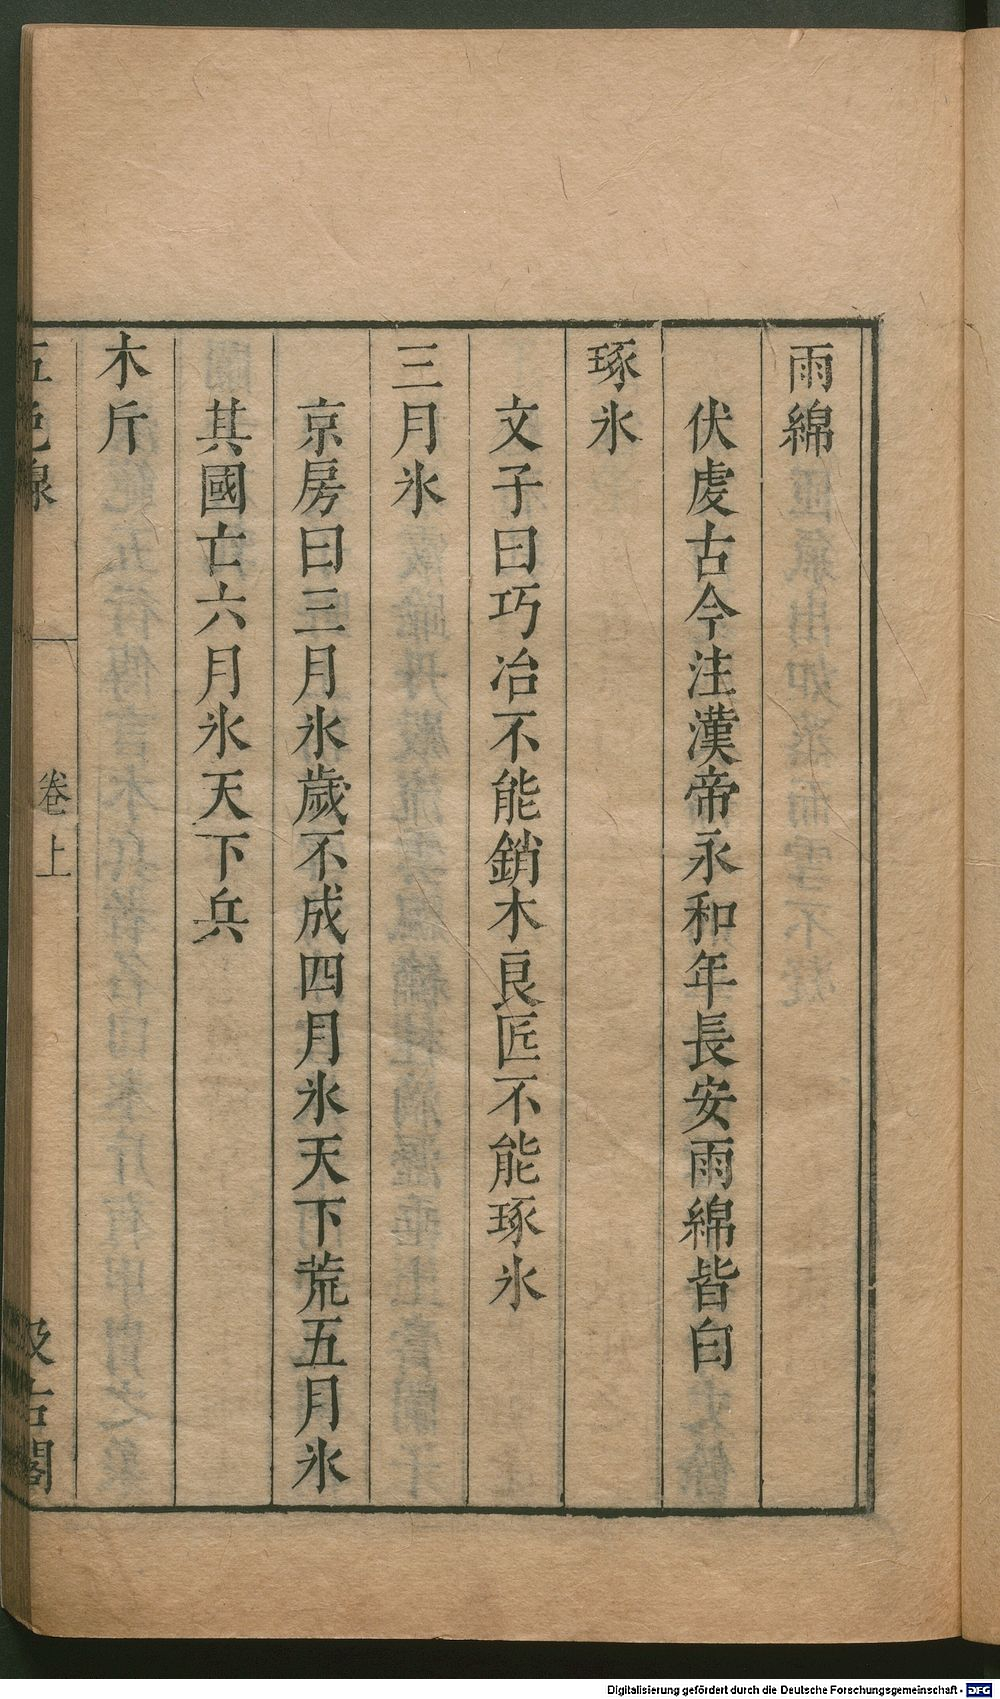 雨綿
伏虔古今注漢帝永和年長安雨綿皆白
琢氷
文子曰巧冶不能銷木良匠不能琢氷
三月氷
京房曰三月氷歲不成四月氷天下荒五月氷
其國亡六月氷天下兵
木斤
五色線
卷上
汲古閣
Digitalisierung gefördert durch die Deutsche Forschungsgemeinschaft - DFG